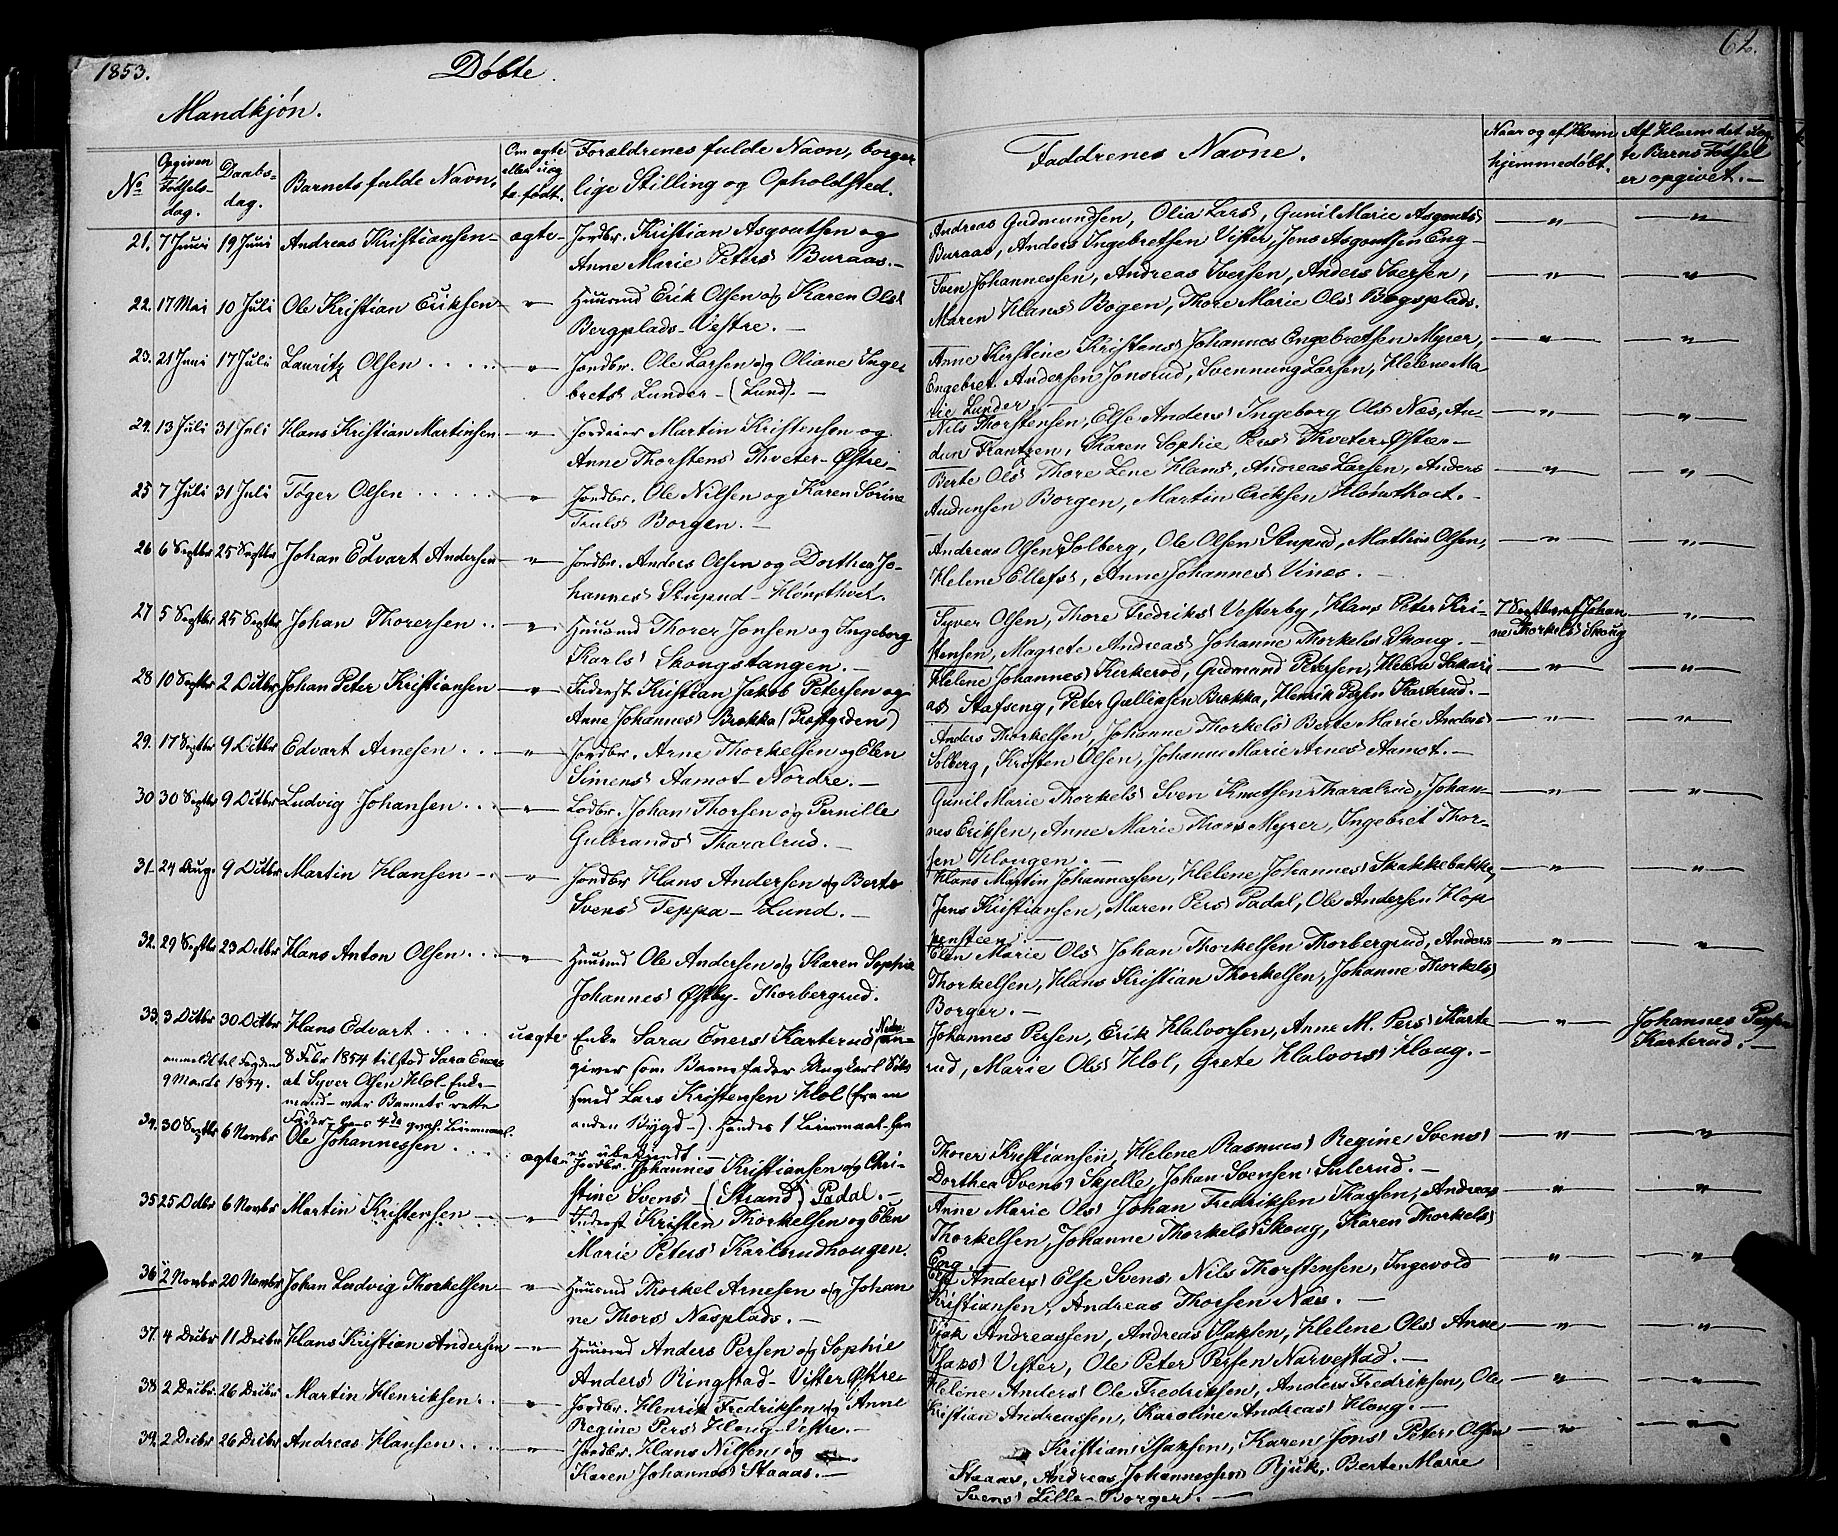 1853.
Døbte.
62.
Mandkjøn.
No
Opgiven Fødselsdag.
Daabsdag.
Barnets fulde Navn.
Om ægte eller uægte født.
Forældrenes fulde Navn, borgerlige Stilling og Opholdsted.
Faddrenes Navne.
Naar og af Hvem hjemmedøbt.
Af Hvem det uægte Barns Fødsel er opgivet.
21. 7 Juni 19 Juni Andreas Kristiansen ægte Jordbr. Kristian Asgoutsen og
Anne Marie Peters Buraas.
Andreas Gudmundsen, Olia Lars, Gunil Marie Asgouts
Buraas, Anders Ingebretsen Vister, Jens Asgoutsen Eng
22. 17 Mai 10 Juli Ole Kristian Eriksen " Huusmd Erik Olsen og Karen Ols
Bergplads Vestre.
Sven Johannessen, Andreas Iversen, Anders Iversen,
Maren Hans Bogen, Thore Marie Ols Bøgsplads.
23. 21 Juni 17 Juli Lauritz Olsen " Jordbr. Ole Larsen og Oliane Inge
brets Lunder (Lund).
Anne Kirstine Kristians Johannes Engebretsen Myrer,
Engebret Andersen Jonsrud, Svennung Larsen, Helene Ma
rie Lunder.
24. 13 Juli 31 Juli Hans Kristian Martinsen " Jordeier Martin Kristensen og
Anne Thorstens Thveter Østre
Nils Thorstensen, Else Anders Ingeborg Ols Næs, An
dun Frantzen, Karen Sophie Pers Thveter Østre
25 7 Juli 31 Juli Tøger Olsen " Jordbr. Ole Nilsen og Karen Sørine
Truls Borgen.
Berte Ols Thore Lene Hans, Andreas Larsen, Anders
Audunsen Borgen, Martin Eriksen
26 6 Septbr 25 Septbr Johan Edvart Andersen " Jordbr. Anders Olsen og Dorthea Jo-
hannes
Andreas Olsen Solberg, Ole Olsen Mathias Olsen,
Helene Ellefs, Anne Johannes Vines.
27 5 Septbr 25 Septbr Johan Thorersen " Huusmd Thorer Jonsen og Ingeborg
Karls Skougstangen.
Syver Olsen, Thore Fredriks Vesterby, Hans Peter Kri-
stensen, Magrete Andreas Johanne Thorkels Skoug.
7 Septbr af Johan
ne Thorkels Skoug
28 10 Septbr 2 Octbr Johan Peter Kristiansen " Inderst Kristian Jakob Petersen og
Anne Johannes Brækka
Helene Johannes Kirkerød, Gudmand Petersen, Helene Sakari
as Stafseng, Peter Gulliksen Brekka, Henrik Persen Karterud.
29. 17 Septbr 9 Octbr Edvart Arnesen " Jordbr. Arne Thorkelsen og Elen
Simens Aamot Nordre.
Anders Thorkelsen, Johanne Thorkels Berte Marie Anders
Solberg, Kristen Olsen, Johanne Marie Arnes Aamot.
30 30 Septbr 9 Octbr Ludvig Johansen " Lodbr. Johan Thorsen og Pernille
Gulbrands Tharalrud.
Gunil Marie Thorkels Sven Knutsen Tharalrud, Johan-
nes Eriksen, Anne Marie Thors Myrer, Ingebret Thor-
sen Hougen.
31 24 Aug. 9 Octbr Martin Hansen " Jordbr Hans Andersen og Berte
Svens Teppa Lund.
Hans Martin Johannessen, Helene Johannes Skakkebakke,
Jens Kristiansen, Maren Pers Padal, Ole Andersen Hop
pensteen.
32. 29 Septbr 23 Octbr Hans Anton Olsen " Huusmd Ole Andersen og Karen Sophie
Johannes Østby Thorbergrud.
Elen Marie Ols Johan Thorkelsen Thorbergrud, Anders
Thorkelsen, Hans Kristian Thorkelsen, Johanne Thorkels
Borger.
33. 3 Octbr 30 Octbr Hans Edvart uægte Enke Sara Eners Karterud Neden-
giver som Barnefader Ungkarl
smed Lars Kristensen Hol (fra en
anden Bygd). Hendes 1 Leiermaal
er ubekjendt.
anmeldt til Fogden
9 Marts 1854.
8 Febr 1854 tilstod Sara Eners
at Syver Olsen Hol Enke-
mand var Barnets rette
Fader, hans 4de Leiermaal.
Johannes Persen, Erik Halvorsen, Anne M. Pers Karte
rud, Marie Ols Hol, Grete Halvors Houg.
Johannes Persen
Karterud.
34. 30 Septbr 6 Novbr Ole Johannessen ægte Jordbr. Johannes Kristiansen og Chri-
stine Svens (Strand) Padal.
Thorer Kristiansen, Helene Rasmus Regine Svens
Dorthea Svens Skjelle, Johan Svensen Sulerud.
35. 25 Octbr 6 Novbr Martin Kristensen " Inderst Kristen Thorkelsen og Elen
Marie Peters Karlsrudhougen.
Anne Marie Ols Johan Fredriksen Kassen, Andreas
Thorkelsen, Johanne Thorkels Skoug, Karen Thorkels
Eng.
36. 2 Novbr 20 Novbr Johan Ludvig Thorkelsen " Huusmd Thorkel Arnesen og Johan
ne Thors Næsplads.
Anders Else Svens, Nils Thorstensen, Ingevold
Kristiansen, Andreas Thorsen Næs.
37. 4 Decbr 11 Decbr Hans Kristian Andersen " Huusmd Anders Persen og Sophie
Anders Ringstad Vister Østre
Isak Andreassen, Andreas Isaksen, Helene Ols Anne
Isaks Vister, Ole Peter Persen Narvestad.
38. 2 Decbr 26 Decbr Martin Henriksen " Jordbr. Henrik Fredriksen og Anne
Regine Pers Houg Vestre.
Helene Anders Ole Fredriksen, Anders Fredriksen, Ole
Kristian Andreassen, Karoline Andreas Houg.
39. 2 Decbr 26 Decbr Andreas Hansen " Jordbr. Hans Nilsen og
Karen Johannes Staaas.
Kristian Isaksen, Karen Jons Peter Olsen
Staaas, Andreas Johannessen Rjuk, Berte Marie
Svens Lille-Borger.